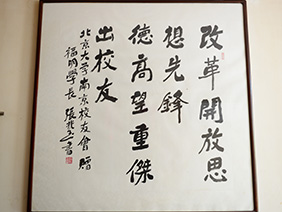 改革開放思
想先鋒
德高望重傑
出校友
北京大學南京校友會贈
福明學長 張
書